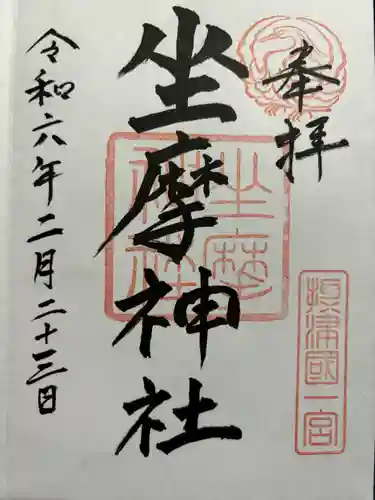 奉拝
坐摩神社
令和六年二月二十三日
坐摩
神社
摂津國一宮